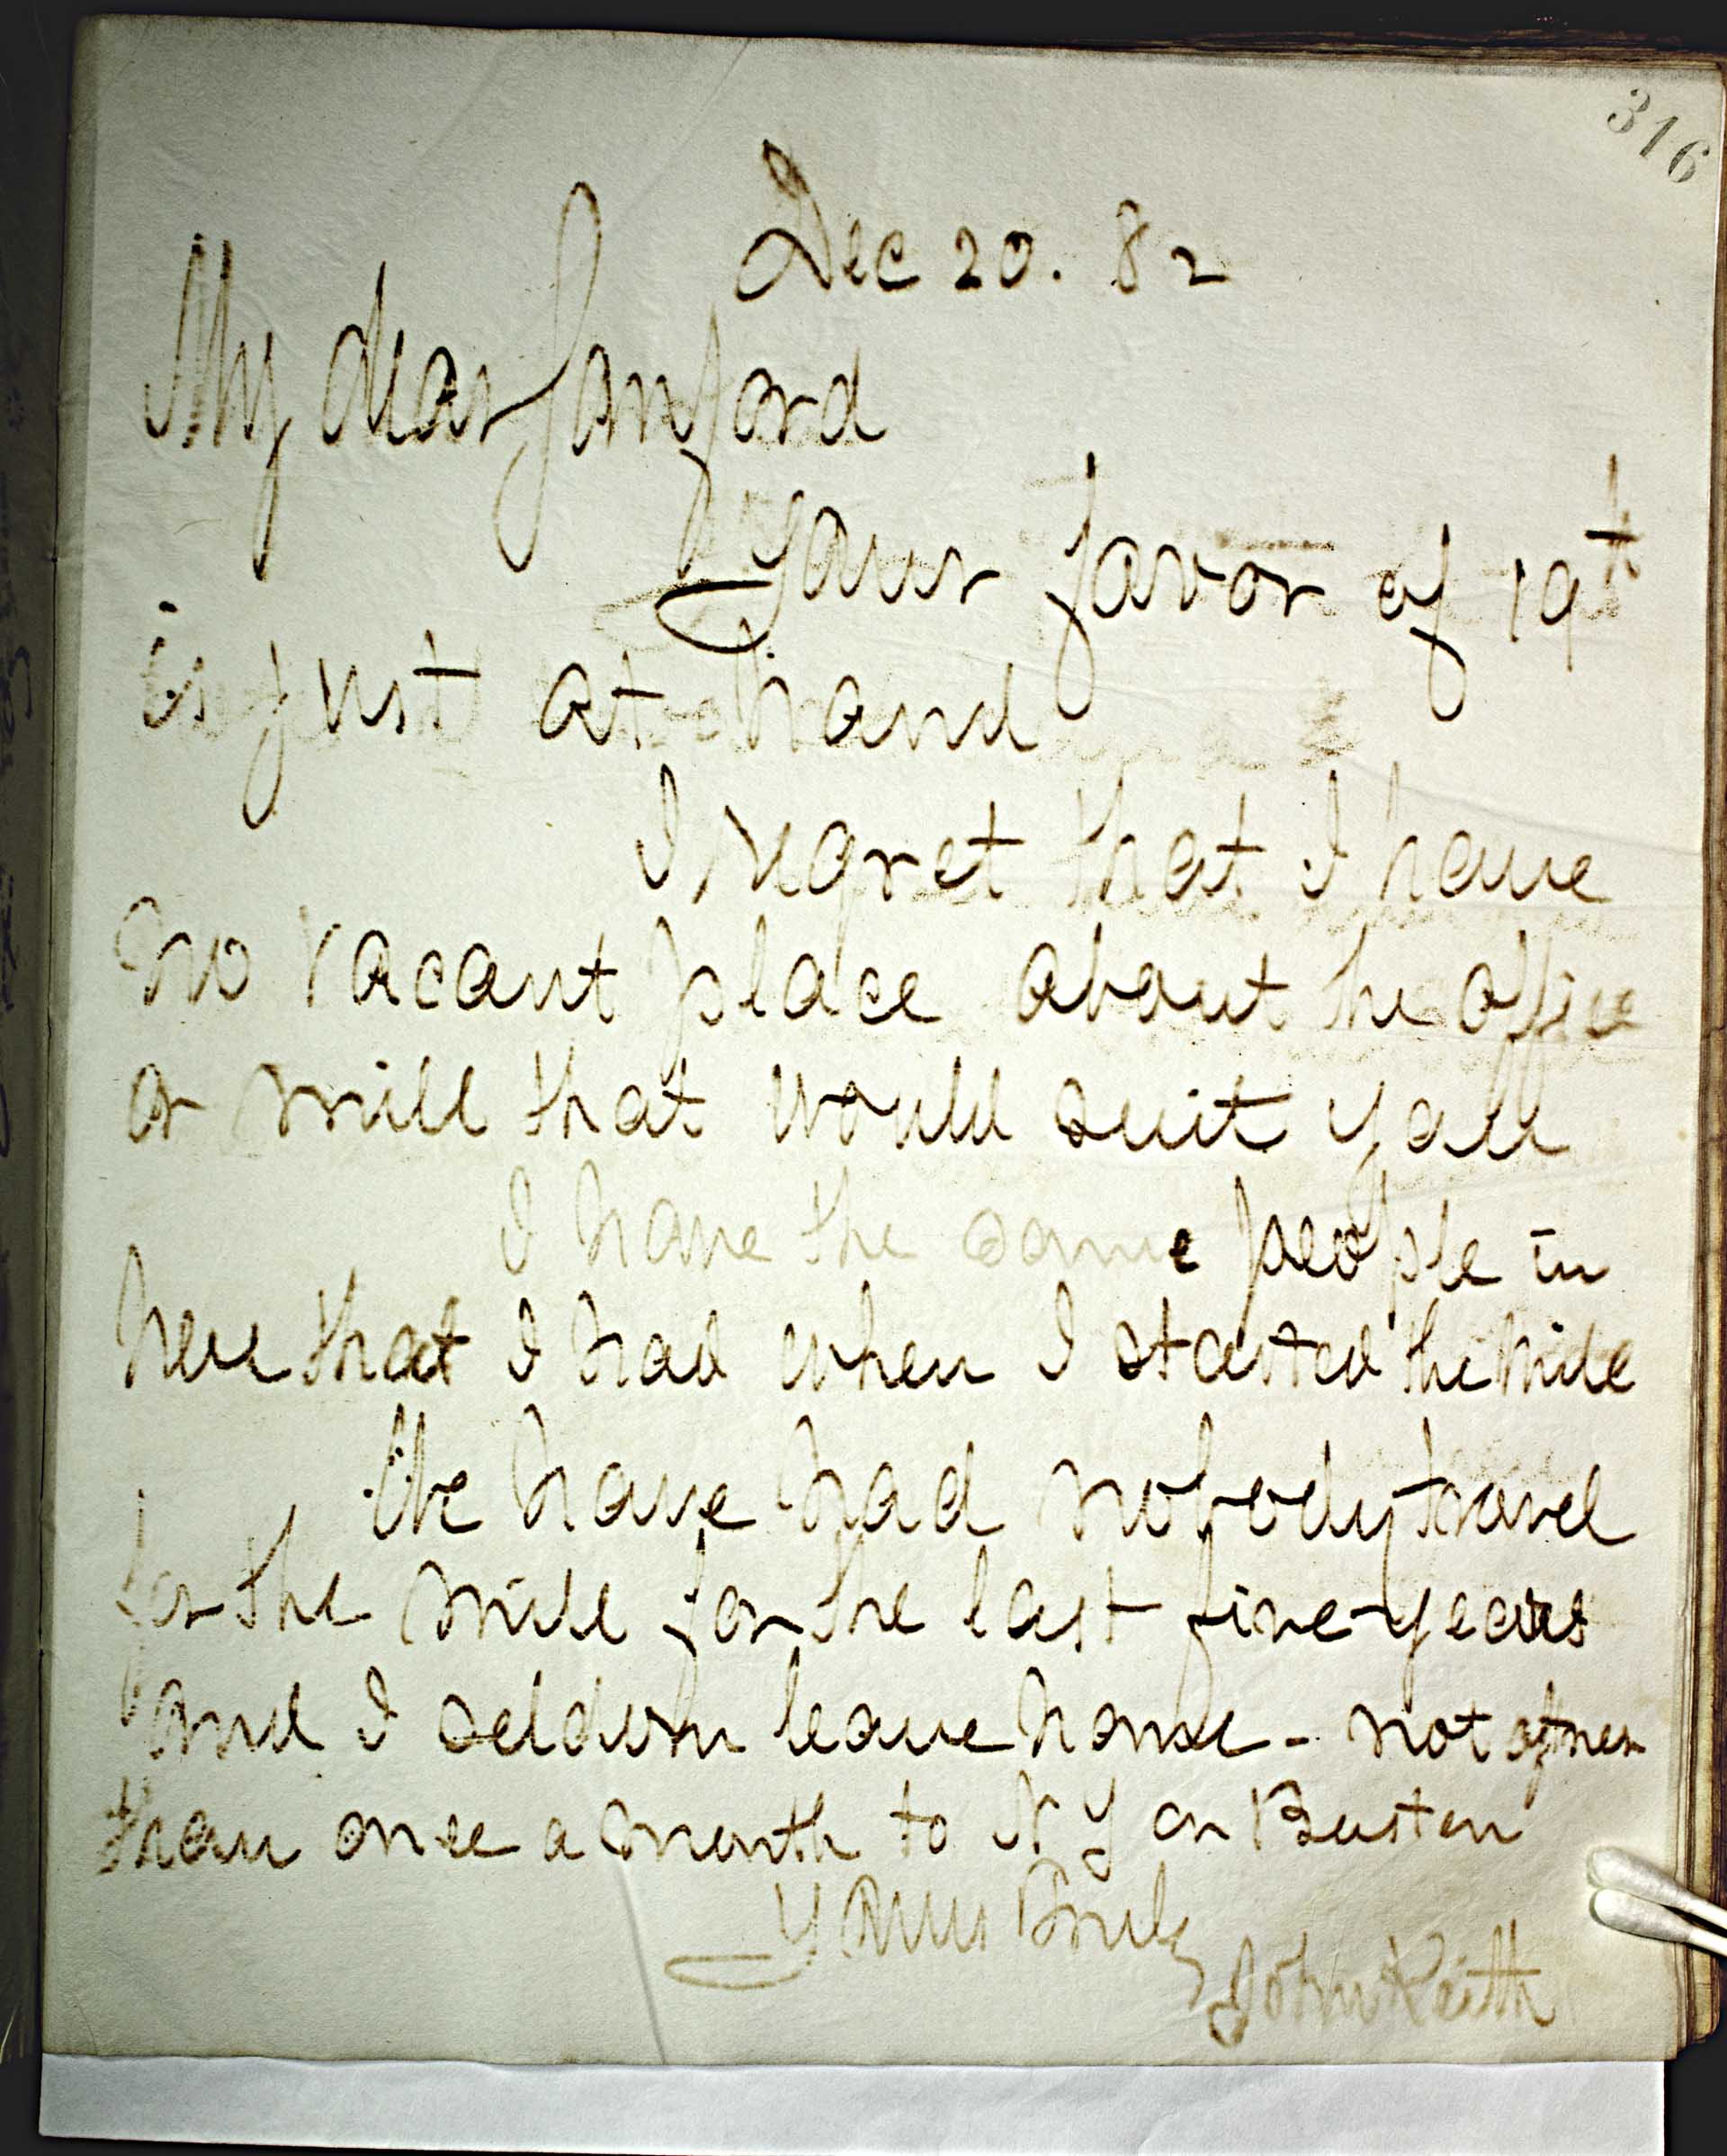 316
Dec 20. 82
My dear Sanford
Your favor of 19th
is just at hand
I regret that I have
no vacant place about the office
or mill that would suit you
I have the same people in
here that I had when I started the mill
We have had nobody travel
for the mill for the last five years
and I seldom leave home - not oftner
than once a month to N Y or Boston
Yours Truly
John Keith